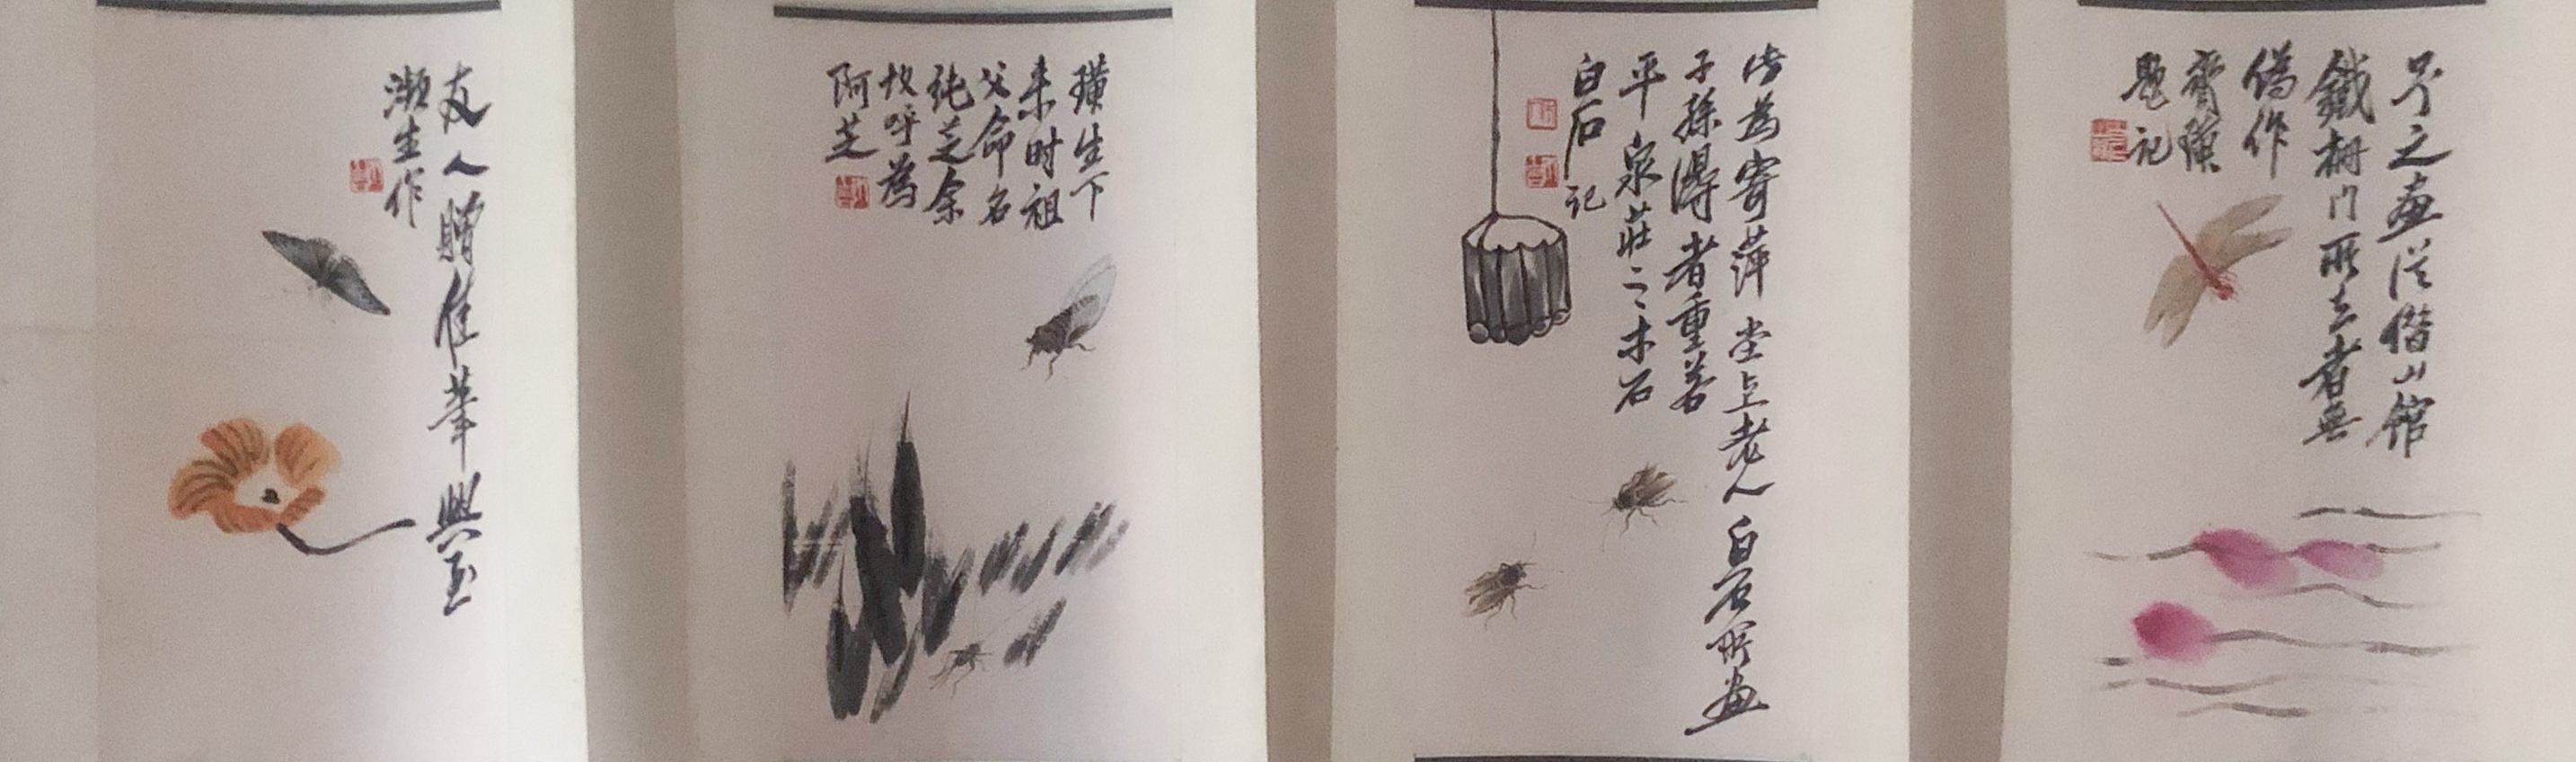 予之畫從借山館
鐵柵门所去者無
偽作
齊璜
題记
為寄萍堂上老人白石所畫
子孫得者重若
平泉莊之木石
白石记
璜生下
来时祖
父命名
純芝余
故呼為
阿芝
友人贈佳筆興至
瀕生作